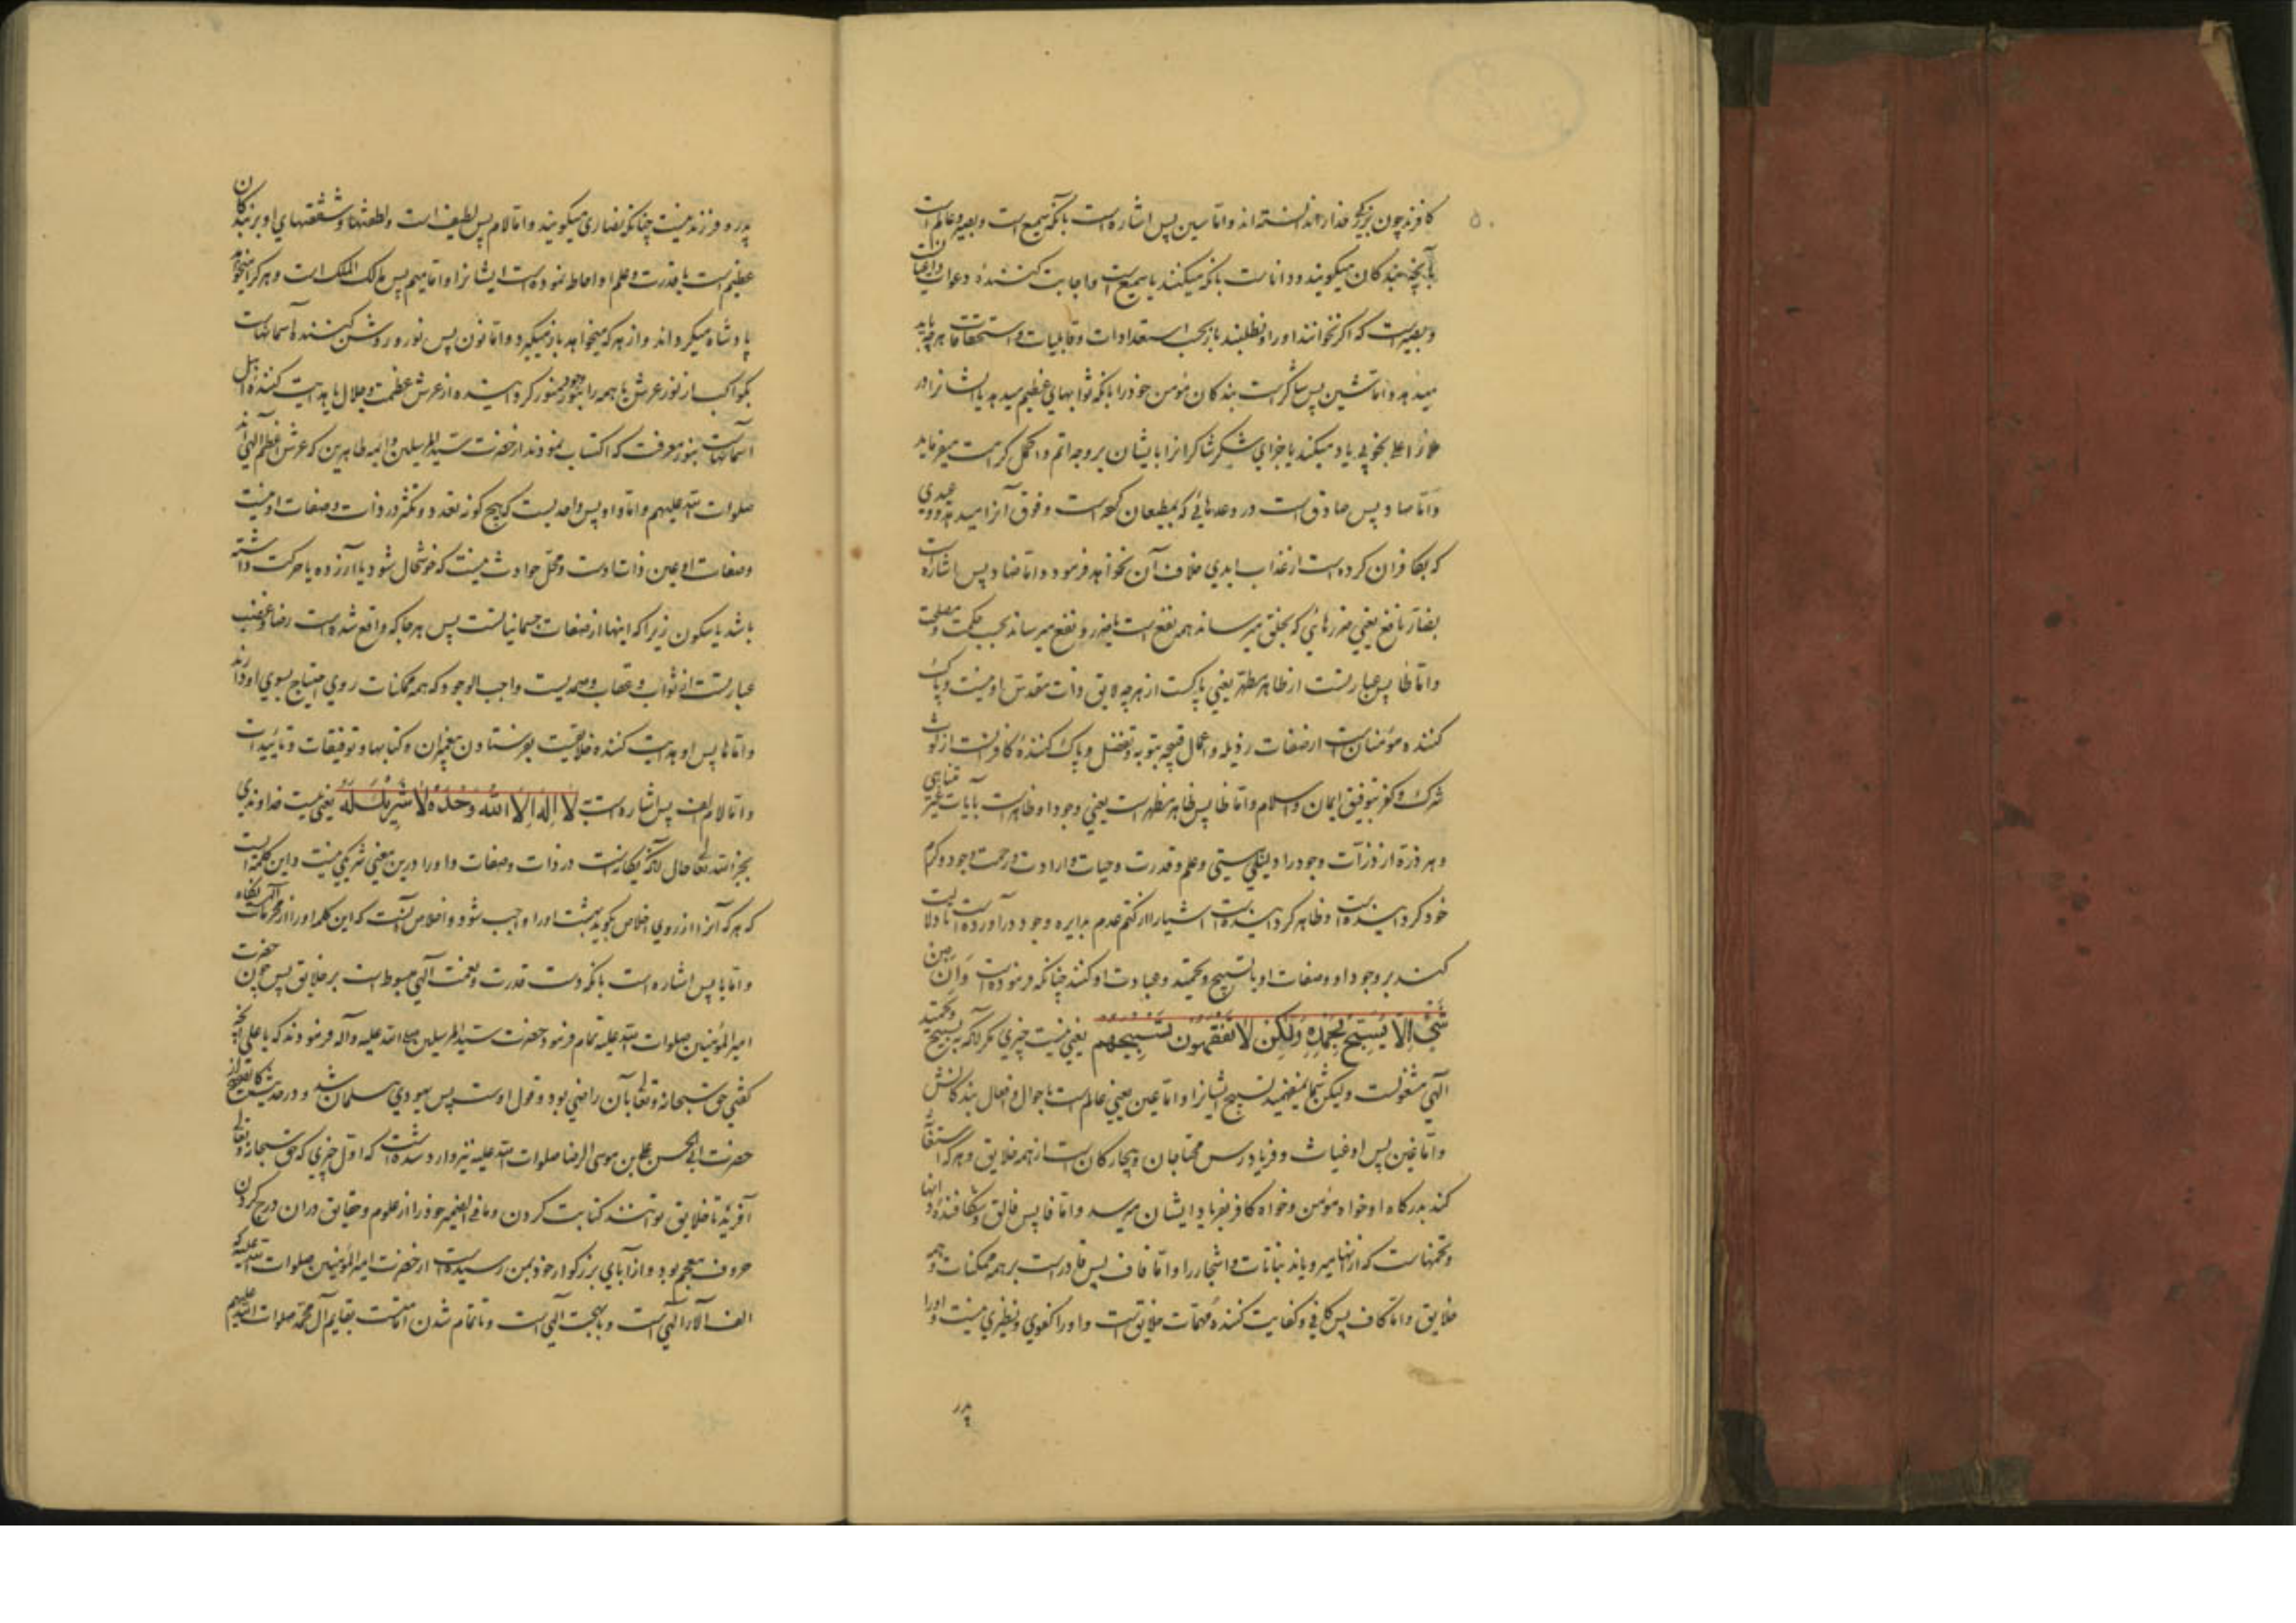 ۵۰
کافرند چون بزرگی خدا را ندانسته‌اند و اما سین پس اشاره است بآنکه سمیع است و بصیر و عالم است
بآنچه بندگان میگویند و دانا است بآنکه میکنند یا سمیع است و اجابت کننده دعوات داعیان
و بصیر است که اگر نخوانند او را و نطلبند باز بحسب استعدادات و قابلیات و استحقاقات هر چه باید
میدهد و اما شین پس شاکر است بندگان مؤمن خود را بآنکه ثوابهای عظیم میدهد یا ایشانرا در
ملاء اعلی بخوبی یاد میکند یا جزای شکر شاکرانرا بایشان بر وجه اتم و اکمل کرامت میفرماید
و اما صاد پس صادق است در وعدهائی که بمطیعان کرده است و فوق آنرا میدهد و وعیدی
که بکافران کرده است از عذاب ابدی خلاف آن نخواهد فرمود و اما ضاد پس اشاره است
بضار نافع یعنی ضررهائی که بخلق میرساند همه نفع است یا ضرر و نفع میرساند بحسب حکمت و مصلحت
و اما طا پس عبارتست از طاهر مطهر یعنی پاکست از هر چه لایق ذات مقدس او نیست و پاک
کننده مؤمنان است از صفات رذیله و اعمال قبیحه بتوبه و تفضل و پاک کننده کافرانست از لوث
شرک و کفر بتوفیق ایمان و اسلام و اما ظا پس ظاهر مظهر است یعنی وجود او ظاهر است بآیات غیر متناهی
و هر ذرة از ذرات وجود را دلیل هستی و علم و قدرت و حیات و ارادت و رحمت وجود و کرم
خود گردانیده است و ظاهر گردانیده است اشیا را از کتم عدم بدایره وجود درآورده است تا دلالت
کنند بر وجود او و صفات او یا تسبیح و تحمید و عبادت او کنند چنانکه فرموده است وَاِنْ مِنْ
شَیْءٍ اِلَّا یُسَبِّحُ بِحَمْدِهِ وَلٰکِنْ لَا تَفْقَهُونَ تَسْبِیحَهُم یعنی نیست چیزی مگر آنکه به تسبیح و تحمید
الهی مشغولست ولیکن شما نمیفهمید تسبیح ایشانرا و اما عین یعنی عالم است باحوال و افعال بندگانش
و اما غین پس او غیاث و فریادرس محتاجان و بیچارگان است از همه خلایق و هر که استغاثه
کند بدرگاه او خواه مؤمن و خواه کافر بفریاد ایشان میرسد و اما فا پس فالق و شکافنده دانها
و تخمهاست که از انها میرویاند نباتات و اشجار را و اما قاف پس قادر است بر همه ممکنات و همه
خلایق و اما کاف پس کافی و کفایت کننده مهمات خلایق است و او را کفوی و نظیری نیست و او را
پدر
پدر و فرزند نیست چنانکه نصاری میگویند و اما لام پس لطیف است و لطفها و شفقتهای او بر بندگان
عظیم است یا قدرت و علم او احاطه نموده است ایشانرا و اما میم پس مالک الملک است و هر که را میخواهد
پادشاه میگرداند و از هر که میخواهد باز میگیرد و اما نون پس نور و روشن کننده آسمانهاست
بکواکب از نور عرش یا همه را بنور وجود منور گردانیده از عرش عظمت و جلال یا هدایت کننده اهل
آسمانهاست بنور معرفت که اکتساب نمودند از حضرت سید المرسلین و ائمه طاهرین که عرش اعظم الهی‌اند
صلوات الله علیهم و اما واو پس واحدیست که هیچ گونه تعدد و تکثر در ذات و صفات او نیست
و صفات او عین ذات اوست و محل حوادث نیست که خوشحال شود یا آزرده یا حرکت داشته
باشد یا سکون زیرا که اینها از صفات جسمانیانست پس هر جا که واقع شده است رضا و غضب
عبارتست از ثواب و عقاب و صمدیست واجب الوجود که همه ممکنات روی احتیاج بسوی او دارند
و اما ها پس او هدایت کننده خلایقست بفرستادن پیغمبران و کتابها و توفیقات و تأییدات
و اما لام الف پس اشاره است ب لَا اِلٰهَ اِلَّا اللهُ وَحْدَهُ لَا شَرِیکَ لَهُ یعنی نیست خداوندی
بجز الله تعالی حال آنکه یگانه است در ذات و صفات و او را درین معنی شریکی نیست و این کلمه است
که هر که آنرا از روی اخلاص بگوید بهشت او را واجب شود و اخلاص آنست که این کلمه او را از محرمات الهی نگاه
و اما یا پس اشاره است بآنکه دست قدرت و نعمت الهی مبسوط است بر خلایق پس چون حضرت
امیر المؤمنین صلوات الله علیه تمام فرمود حضرت سید المرسلین صلی الله علیه وآله فرمودند که یا علی آنچه
گفتی حق سبحانه وتعالی بآن راضی بود و قول اوست پس یهودی مسلمان شد و در حدیث
حضرت ابی الحسن علی بن موسی الرضا صلوات الله علیه نیز وارد شده است که اول چیزی که حق سبحانه وتعالی
آفرید تا خلایق توانند کتابت کردن و ما فی الضمیر خود را از علوم و حقایق در آن درج کردن
حروف معجم بود و از آبای بزرگوار خود بمن رسیده است از حضرت امیر المؤمنین صلوات الله علیه که
الف آلاء الهی است و با بهجت الهی است و تا تمام شدن امتست بقایم آل محمد صلوات الله علیهم